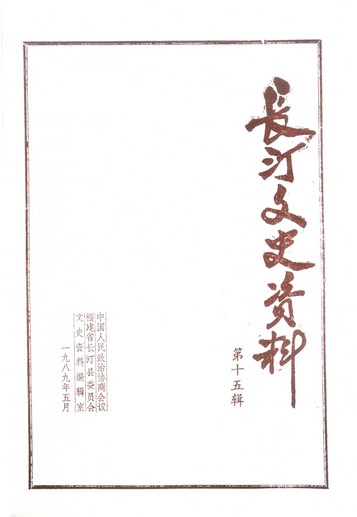 长汀文史资料
第十五辑
中国人民政治协商会议
福建省长汀县委员会
文史资料编辑室
一九八九年五月